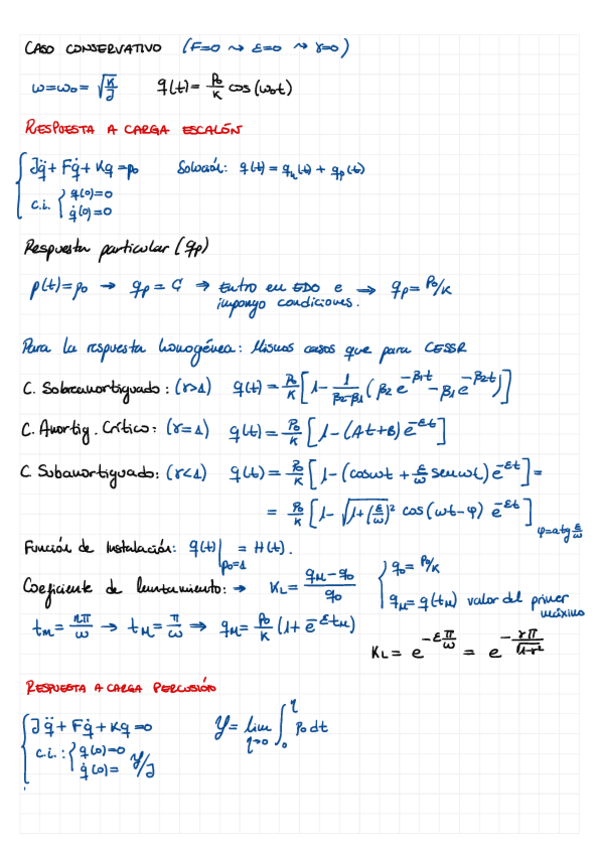 CASO CONSERVATIVO (F=0 ⇝ ε=0 ⇝ r=0)
ω=ω₀=√(K/J) q(t)= P₀/K cos(ω₀t)
RESPUESTA A CARGA ESCALÓN
Jq̈+Fq̇+Kq=p₀ Solución: q(t)=qₕ(t)+qₚ(t)
c.i. { q(0)=0
q̇(0)=0
Respuesta particular (qₚ)
p(t)=p₀ → qₚ=C → Entro en EDO e → qₚ=P₀/K
impongo condiciones.
Para la respuesta homogénea: Mismos casos que para CESSR
C. Sobreamortiguado: (r>1) q(t)= P₀/K [1- 1/(β₂-β₁) (β₂e^(-β₁t) -β₁e^(-β₂t))]
C. Amortig. Crítico: (r=1) q(t)= P₀/K [1-(At+B)e^(-εt)]
C. Subamortiguado: (r<1) q(t)= P₀/K [1-(cosωt + ε/ω senωt)e^(-εt)]=
= P₀/K [1-√(1+(ε/ω)²) cos(ωt-φ) e^(-εt)] φ=atg ε/ω
Función de Instalación: q(t)|p₀=1 = H(t).
Coeficiente de lanzamiento: → K_L= (q_M-q₀)/q₀ { q₀= P₀/K
q_M=q(t_M) valor del primer máximo
tₙ= nπ/ω → t_M= π/ω → q_M= P₀/K (1+e^(-εt_M))
K_L= e^(-επ/ω) = e^(-rπ/√(1-r²))
RESPUESTA A CARGA PERCUSIÓN
Jq̈+Fq̇+Kq=0 Y= lim η→0 ∫₀^η p₀ dt
c.i.: { q(0)=0
q̇(0)= Y/J